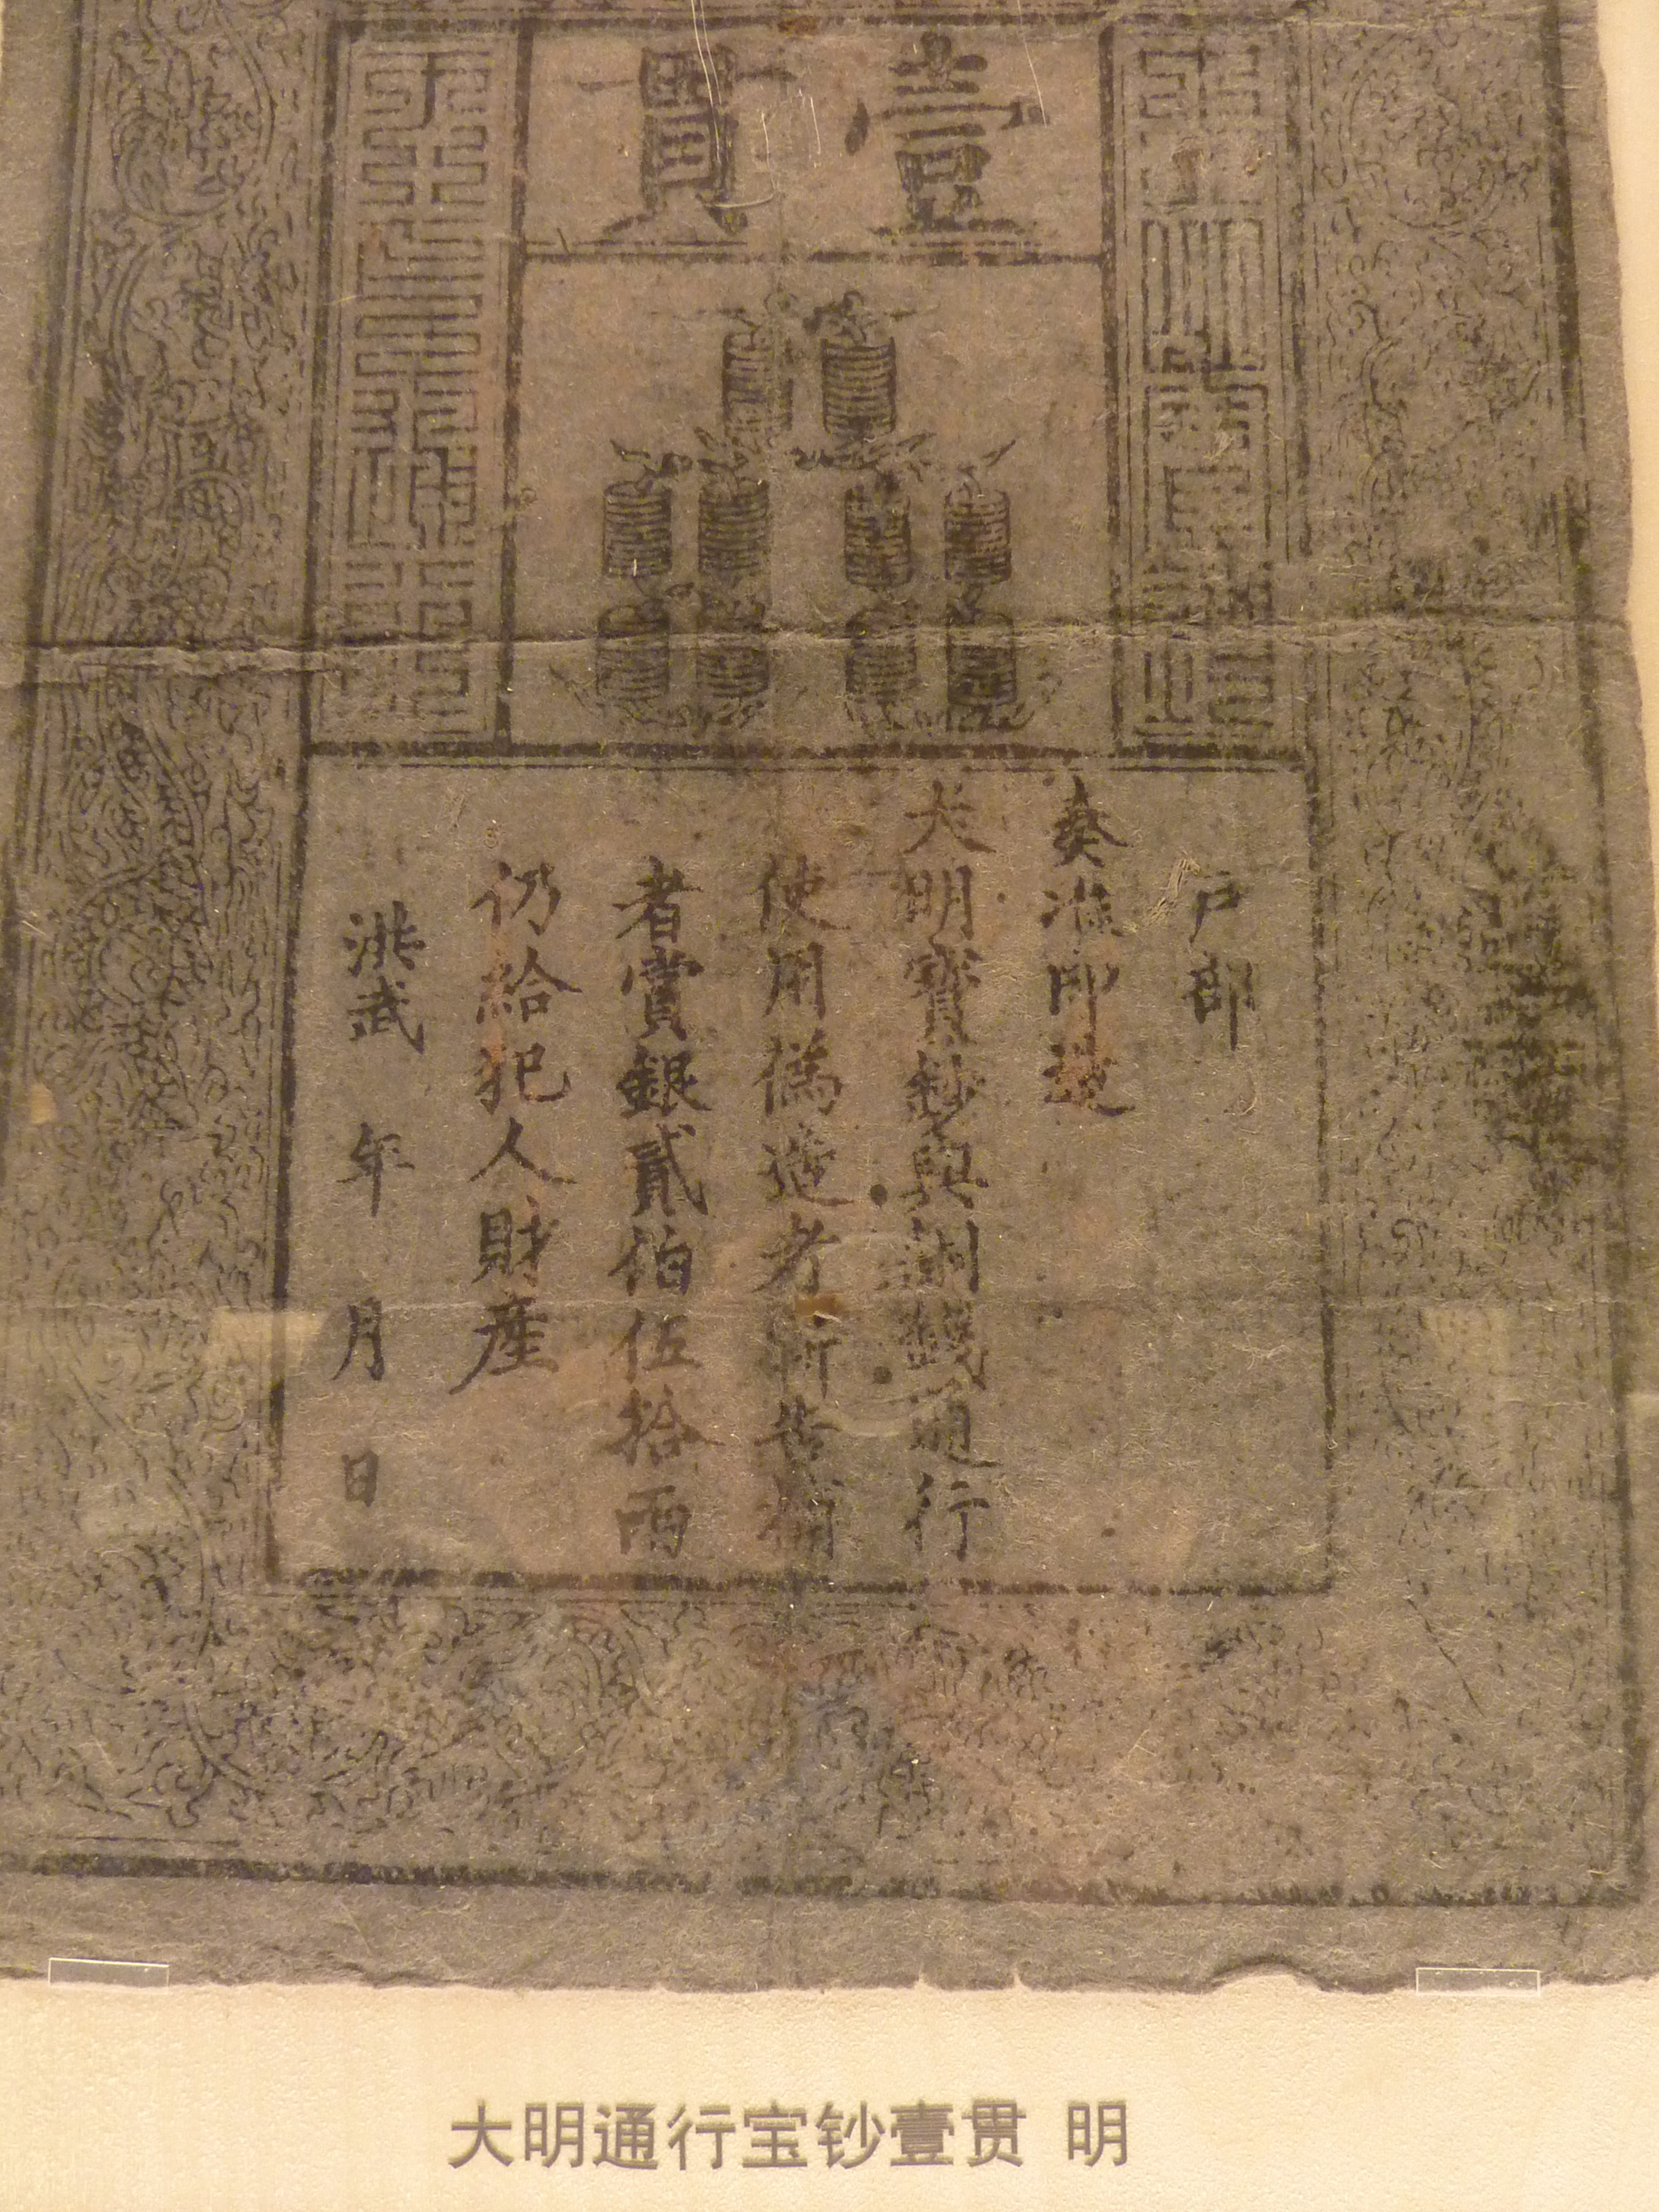 壹貫
大明寶鈔
天下通行
戶部
奏准印造
大明寶鈔與銅錢通行
使用僞造者斬告捕
者賞銀貳伯伍拾兩
仍給犯人財產
洪武 年 月 日
大明通行宝钞壹贯 明